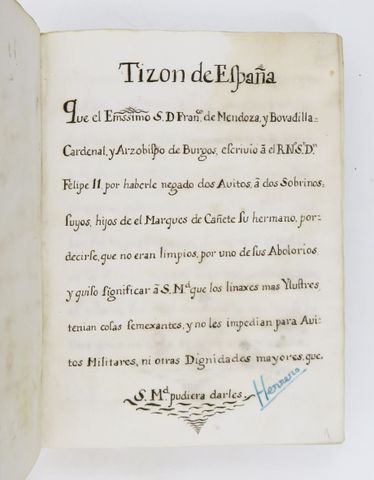 Tizon de España
Que el Emssimo S. D Franco. de Mendoza, y Bovadilla
Cardenal, y Arzobispo de Burgos, escrivio ã el R.N.S.r D.n
Felipe II. por haberle negado dos Avitos, ã dos Sobrinos
suyos, hijos de el Marques de Cañete su hermano, por
decirse, que no eran limpios, por uno de sus Abolorios,
y quiso significar ã S. Md. que los linaxes mas Ylustres
tenian cosas semexantes, y no les impedian para Avi-
tos Militares, ni otras Dignidades mayores, que
S. Md. pudiera darles.
Herrero